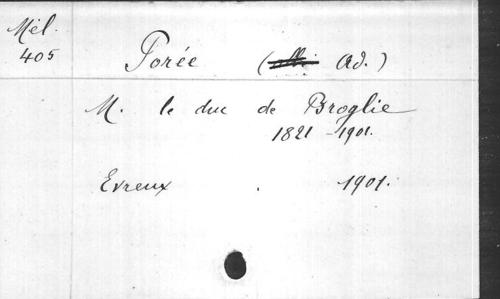 Mél.
405
Porée (Ad.)
M. le duc de Broglie
1821-1901.
Evreux . 1901.